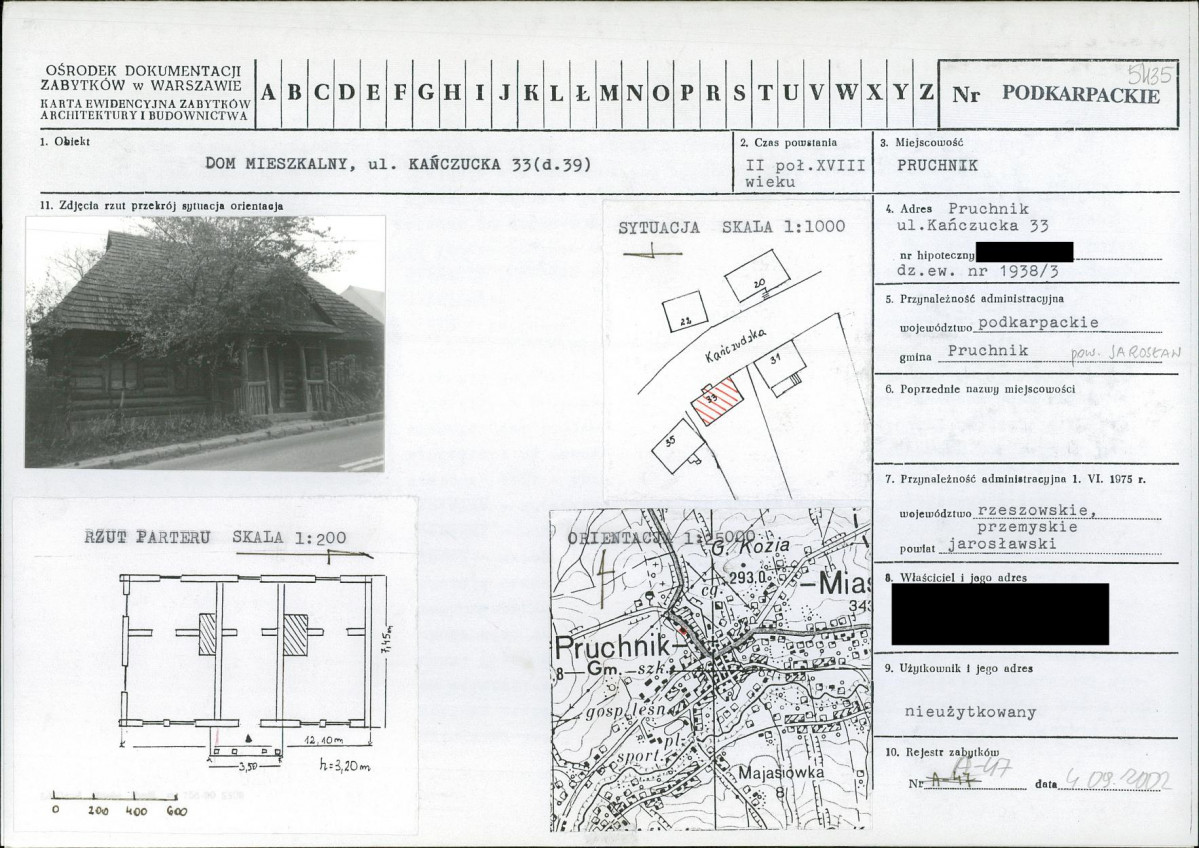 OŚRODEK DOKUMENTACJI
ZABYTKÓW w WARSZAWIE
KARTA EWIDENCYJNA ZABYTKÓW
ARCHITEKTURY I BUDOWNICTWA
A B C D E F G H I J K L Ł M N O P R S T U V W X Y Z
5435
Nr PODKARPACKIE
1. Obiekt
DOM MIESZKALNY, ul. KAŃCZUCKA 33(d.39)
2. Czas powstania
II poł.XVIII
wieku
3. Miejscowość
PRUCHNIK
11. Zdjęcia rzut przekrój sytuacja orientacja
SYTUACJA SKALA 1:1000
20
22
Kańczudska
31
33
35
4. Adres Pruchnik
ul.Kańczucka 33
nr hipoteczny
dz.ew. nr 1938/3
5. Przynależność administracyjna
województwo podkarpackie
gmina Pruchnik pow. JAROSŁAW
6. Poprzednie nazwy miejscowości
7. Przynależność administracyjna 1. VI. 1975 r.
województwo rzeszowskie,
przemyskie
powiat jarosławski
8. Właściciel i jego adres
9. Użytkownik i jego adres
nieużytkowany
10. Rejestr zabytków
A-47
Nr A-47 data 4.09.2002
RZUT PARTERU SKALA 1:200
7,45m
12,10m
3,50
h=3,20m
0 200 400 600
ORIENTACJA 1:25000
G. Kozia
293,0
cg.
Mias
343
Pruchnik
8 Gm. szk.
gosp. leśn.
pl.
sport.
Majasiówka
8